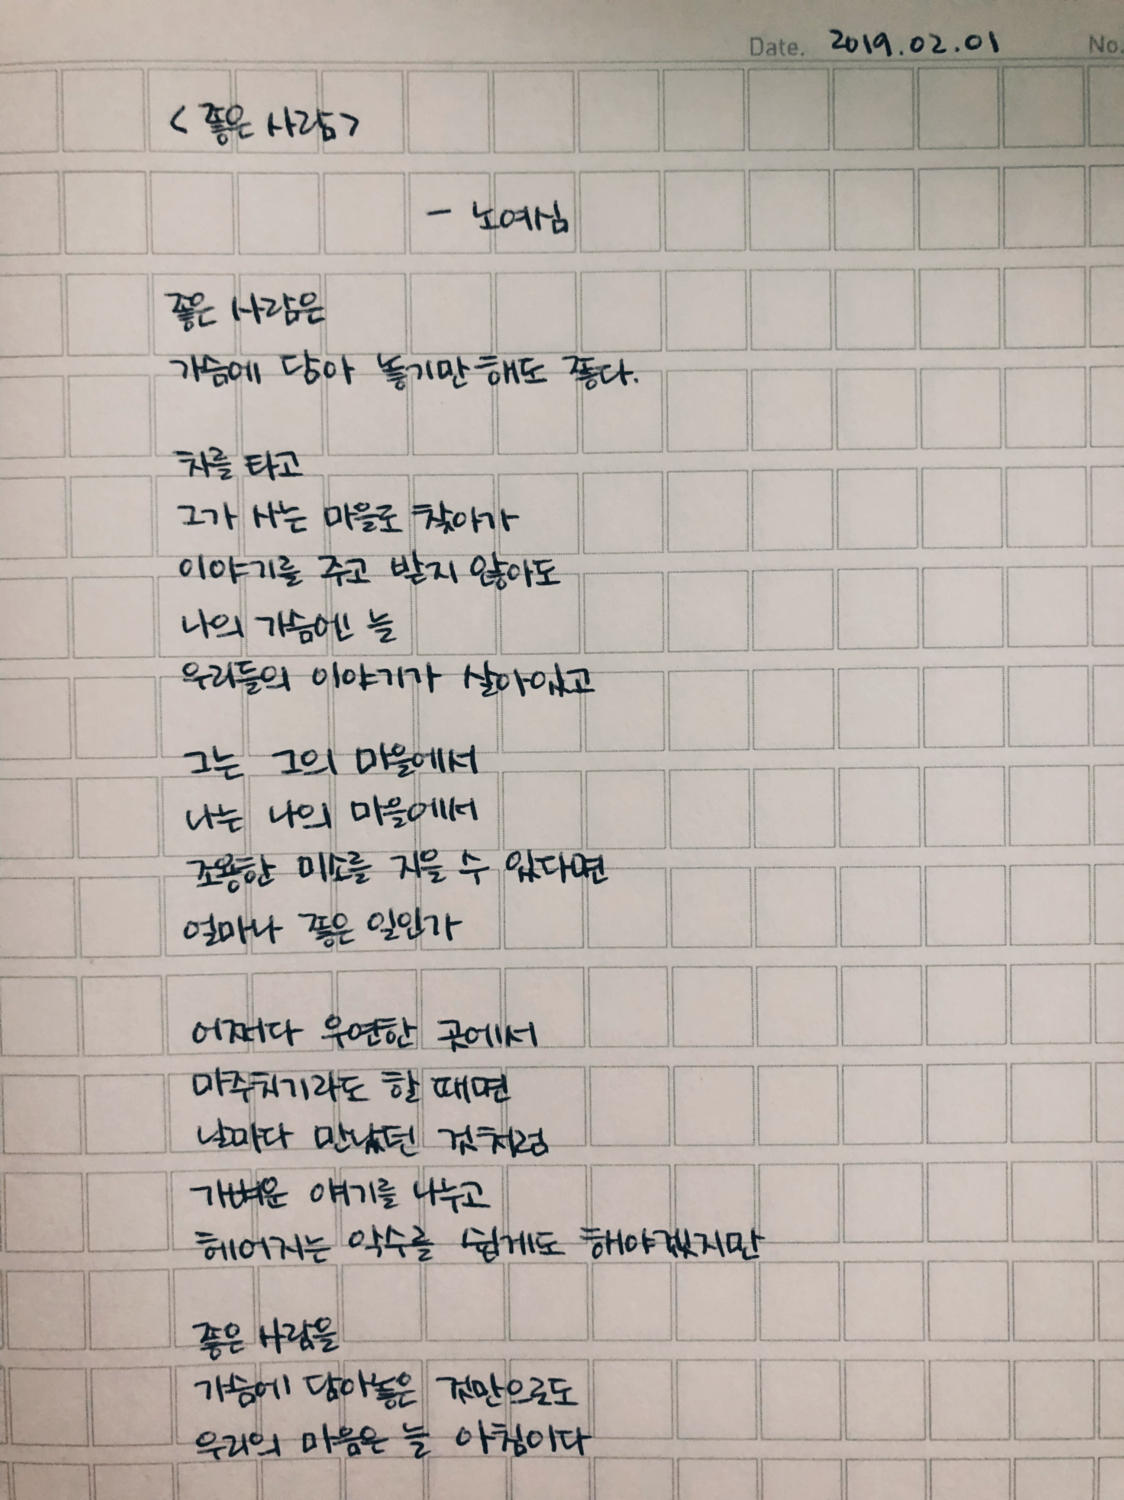 Date. 2019.02.01 No.
<좋은 사람>
- 노여심
좋은 사람은
가슴에 담아 놓기만 해도 좋다.
차를 타고
그가 사는 마을로 찾아가
이야기를 주고 받지 않아도
나의 가슴엔 늘
우리들의 이야기가 살아있고
그는 그의 마을에서
나는 나의 마을에서
조용한 미소를 지을 수 있다면
얼마나 좋은 일인가
어쩌다 우연한 곳에서
마주치기라도 할 때면
날마다 만났던 것처럼
가벼운 얘기를 나누고
헤어지는 악수를 쉽게도 해야겠지만
좋은 사람을
가슴에 담아놓은 것만으로도
우리의 마음은 늘 아침이다